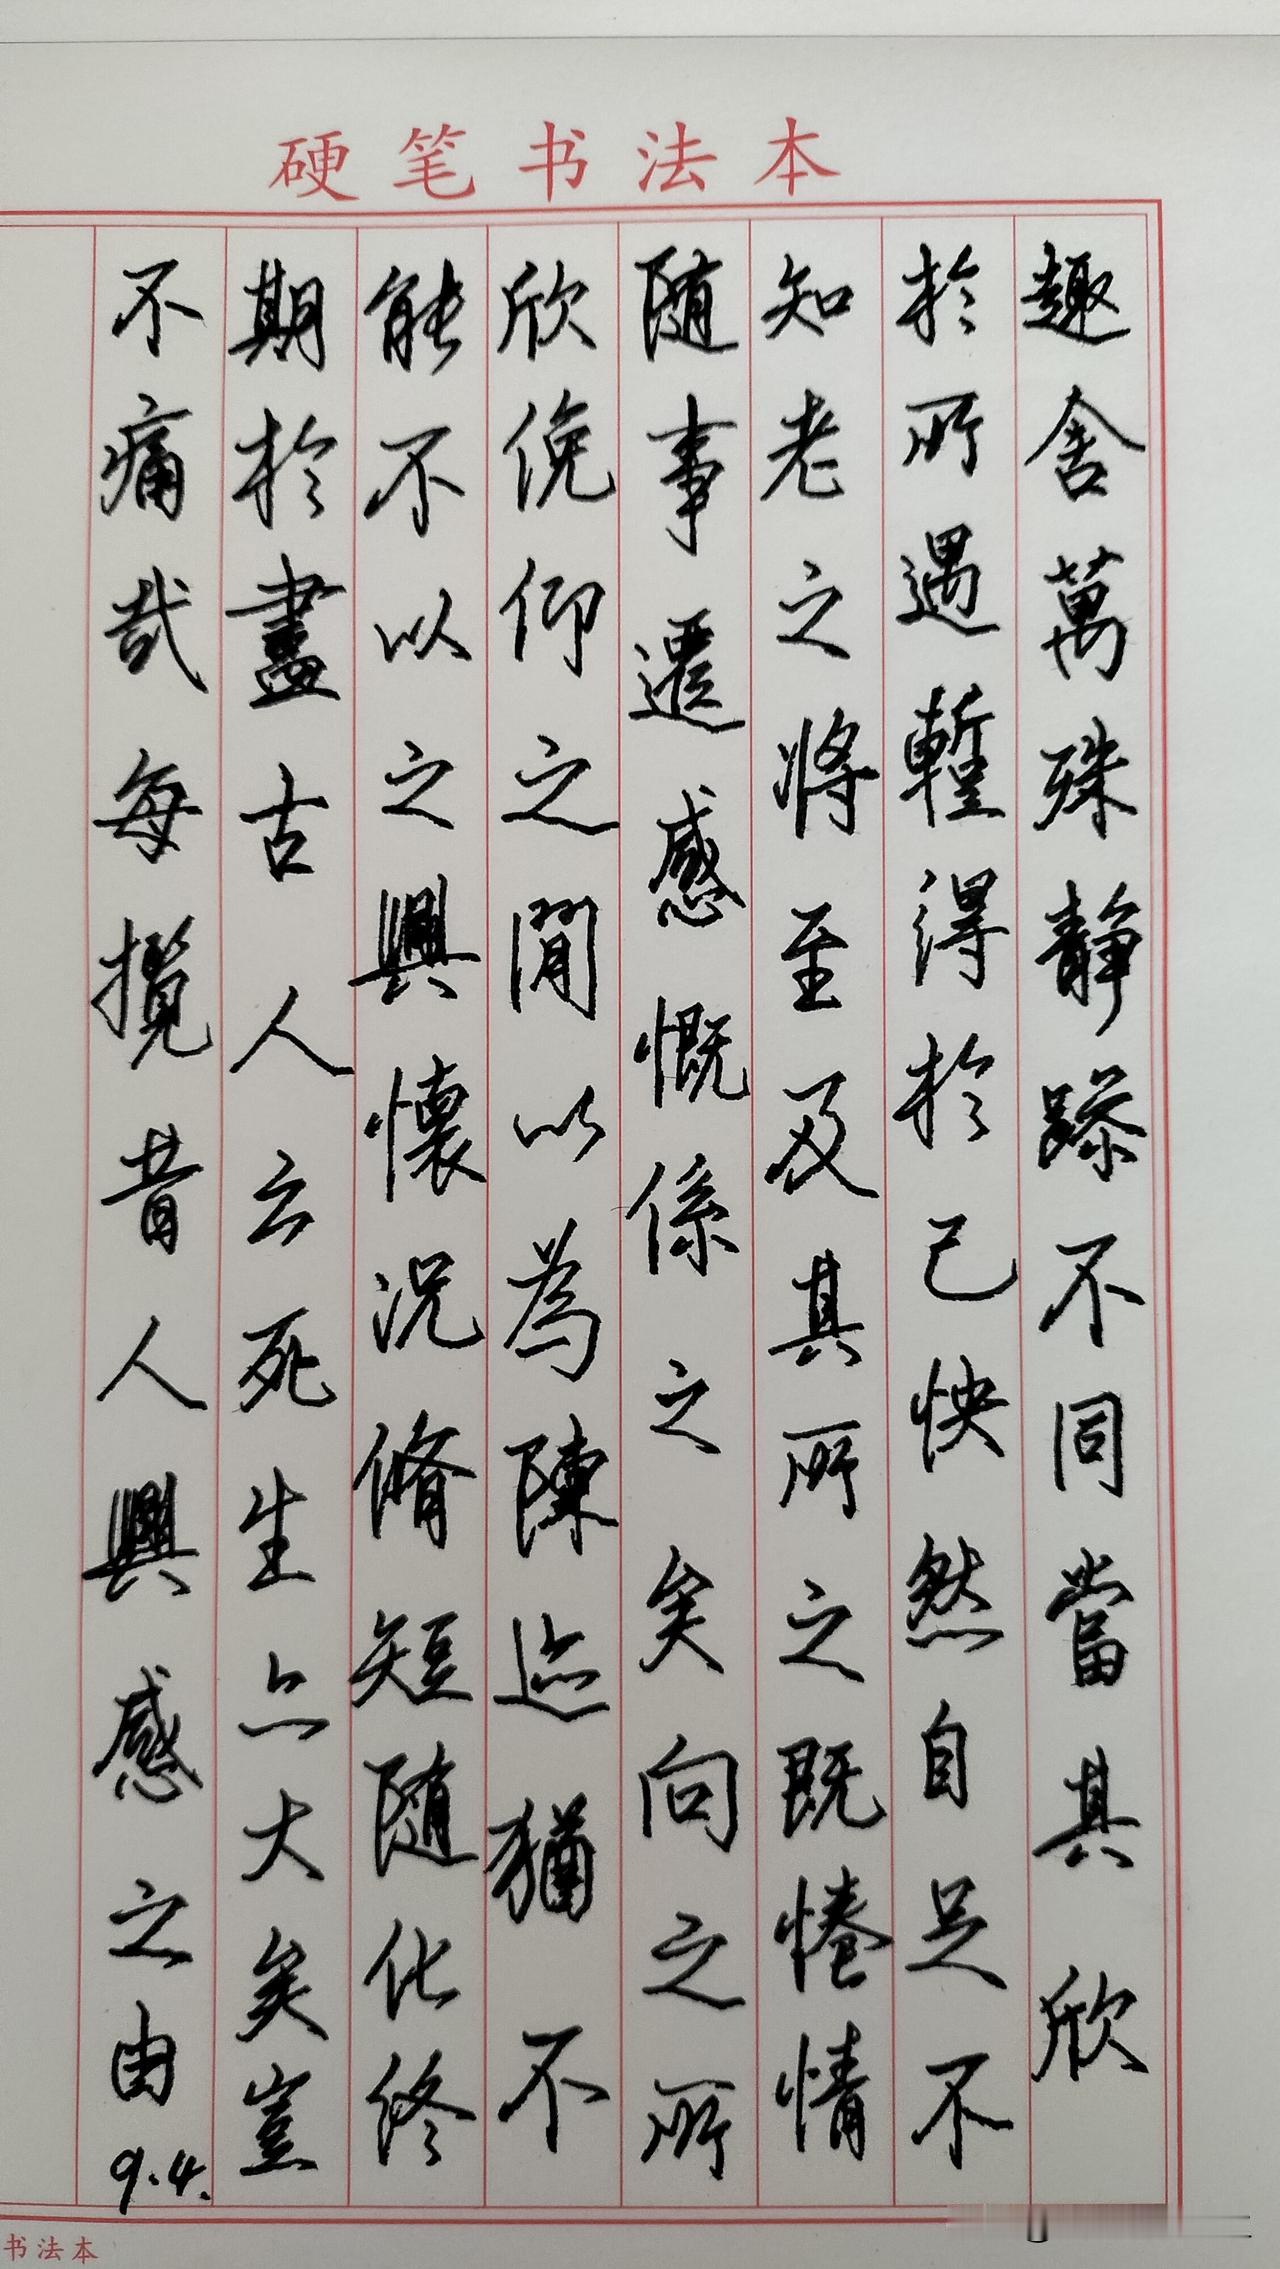 硬笔书法本
趣舍萬殊静躁不同當其欣
於所遇蹔得於己怏然自足不
知老之将至及其所之既惓情
随事遷感慨係之矣向之所
欣俛仰之閒以為陳迹猶不
能不以之興懷况脩短随化終
期於盡古人云死生亦大矣豈
不痛哉每攬昔人興感之由
9.4.
书法本